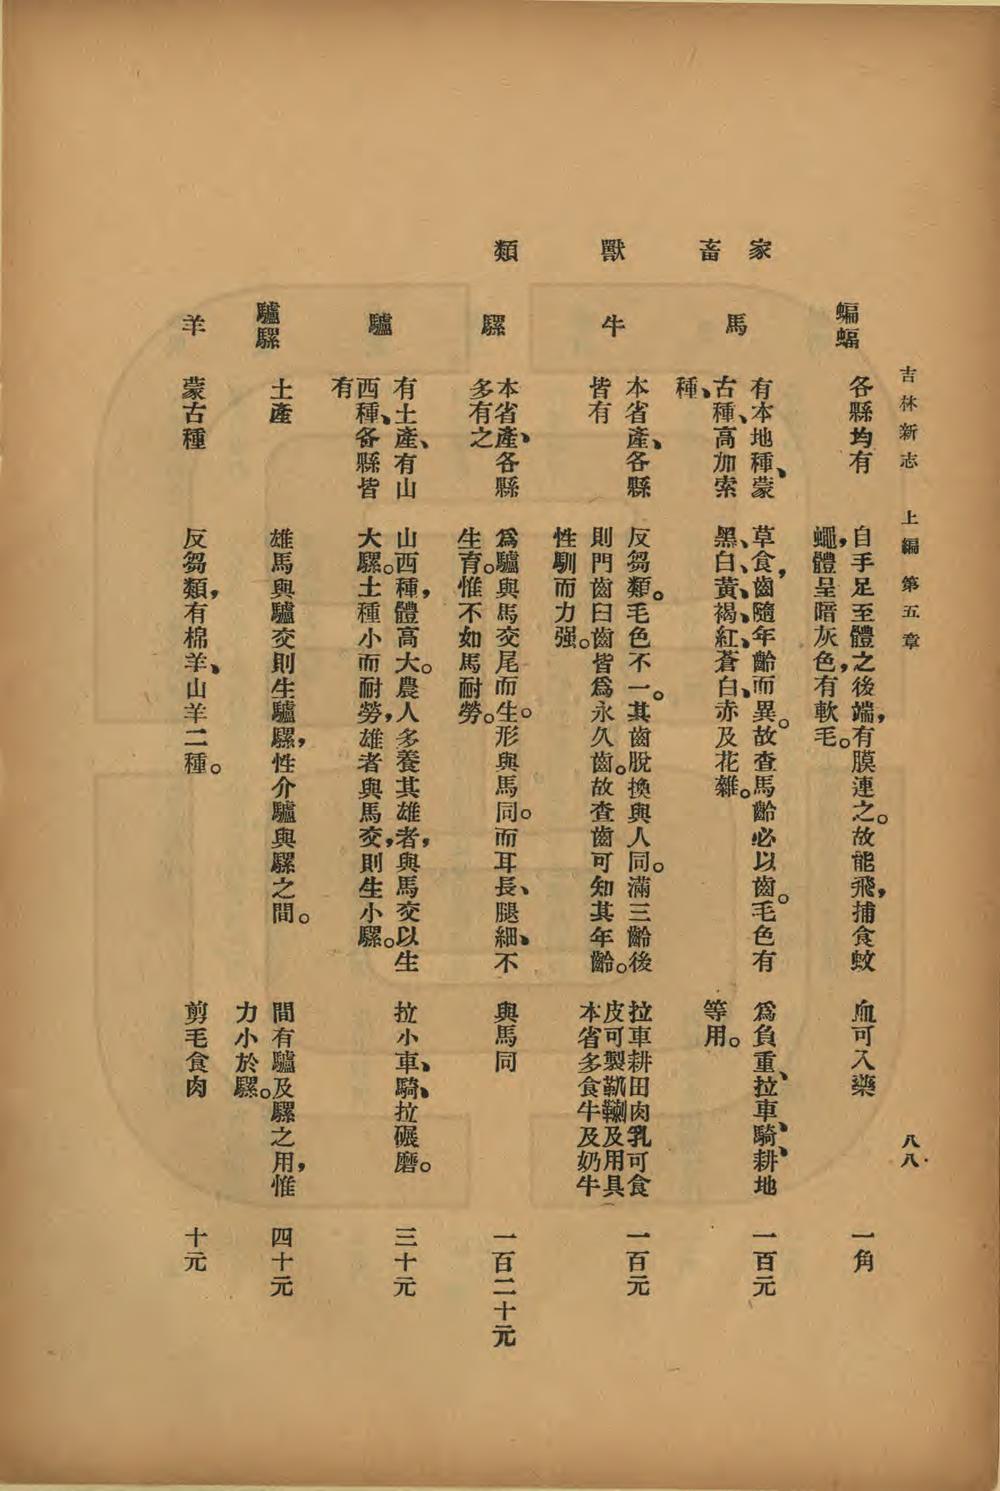 吉林新志　上編　第五章　八八
蝙蝠
各縣均有
自手足至體之後端，有膜連之。故能飛，捕食蚊
蠅，體呈暗灰色，有軟毛。
血可入藥
一角
家畜獸類
馬
有本地種、蒙
古種、高加索
種、
草食，齒隨年齡而異。故查馬齡必以齒。毛色有
黑、白、黃、褐、紅、蒼白、赤及花雜。
爲負重、拉車、騎、耕地
等用。
一百元
牛
本省產、各縣
皆有
反芻類。毛色不一。其齒脫換與人同。滿三齡後
則門齒臼齒皆爲永久齒。故查齒可知其年齡。
性馴而力强。
拉車耕田肉乳可食
皮可製靰鞡及用具
本省多食牛及奶牛
一百元
騾
本省產、各縣
多有之
爲驢與馬交尾而生。形與馬同。而耳長、腿細、不
生育。惟不如馬耐勞。
與馬同
一百二十元
驢
有土產、有山
西種、各縣皆
有
山西種，體高大。農人多養其雄者，與馬交以生
大騾。土種小而耐勞，雄者與馬交，則生小騾。
拉小車、騎、拉碾磨。
三十元
驢騾
土產
雄馬與驢交則生驢騾，性介驢與騾之間。
間有驢及騾之用，惟
力小於騾。
四十元
羊
蒙古種
反芻類，有棉羊、山羊二種。
剪毛食肉
十元